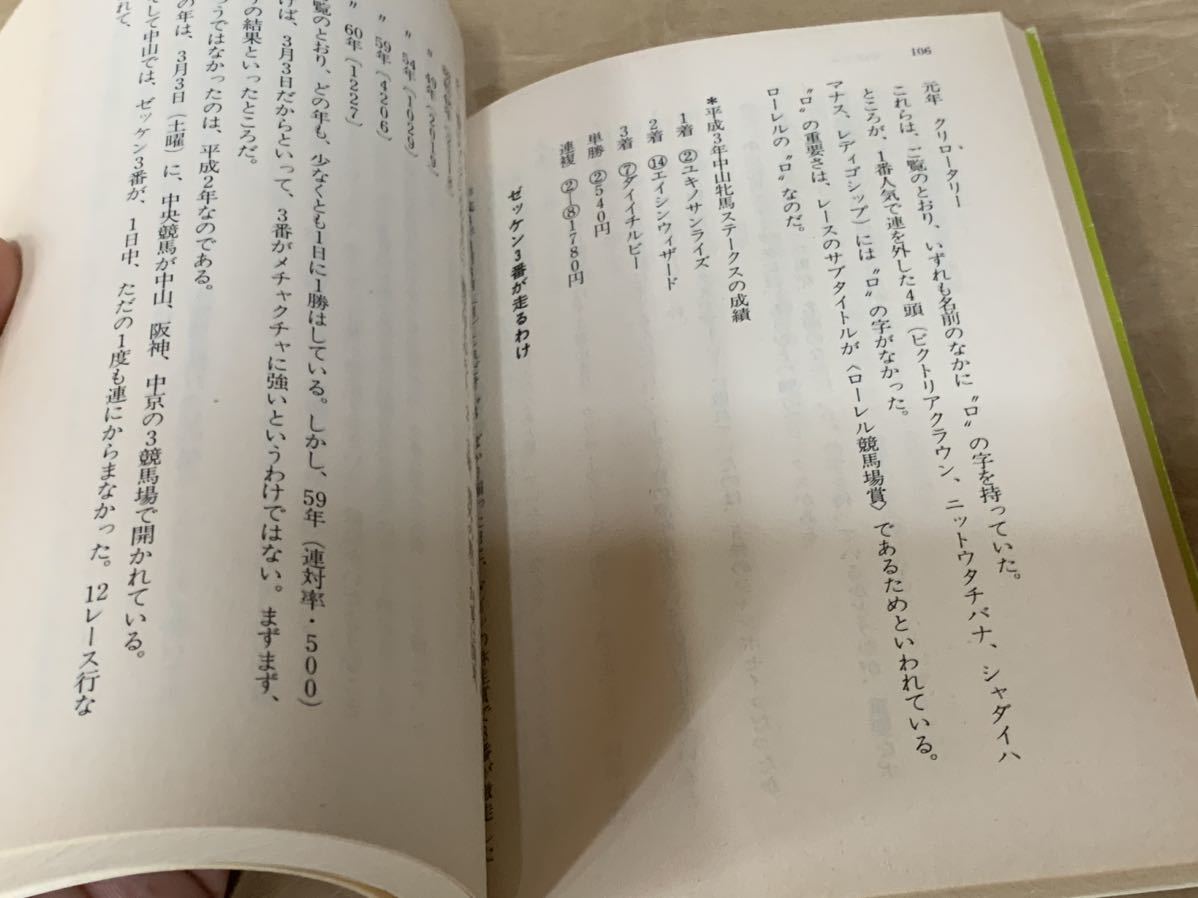 106
元年　クリロータリー
これらは、ご覧のとおり、いずれも名前のなかに〝ロ〟の字を持っていた。
ところが、1番人気で連を外した4頭（ビクトリアクラウン、ニットウタチバナ、シャダイハ
マナス、レディゴシップ）には〝ロ〟の字がなかった。
〝ロ〟の重要さは、レースのサブタイトルが〈ローレル競馬場賞〉であるためといわれている。
ローレルの〝ロ〟なのだ。
＊平成3年中山牝馬ステークスの成績
1着　②ユキノサンライズ
2着　⑭エイシンウィザード
3着　⑦ダイイチルビー
単勝　②540円
連複　②―⑧1780円
ゼッケン3番が走るわけ
〃　49年（2019）
〃　54年（1029）
〃　59年（4206）
〃　60年（1227）
覧のとおり、どの年も、少なくとも1日に1勝はしている。しかし、59年（連対率・500）
けば、3月3日だからといって、3番がメチャクチャに強いというわけではない。まずまず、
りの結果といったところだ。
うではなかったのは、平成2年なのである。
の年は、3月3日（土曜）に、中央競馬が中山、阪神、中京の3競馬場で開かれている。
して中山では、ゼッケン3番が、1日中、ただの1度も連にからまなかった。12レース行な
れて、